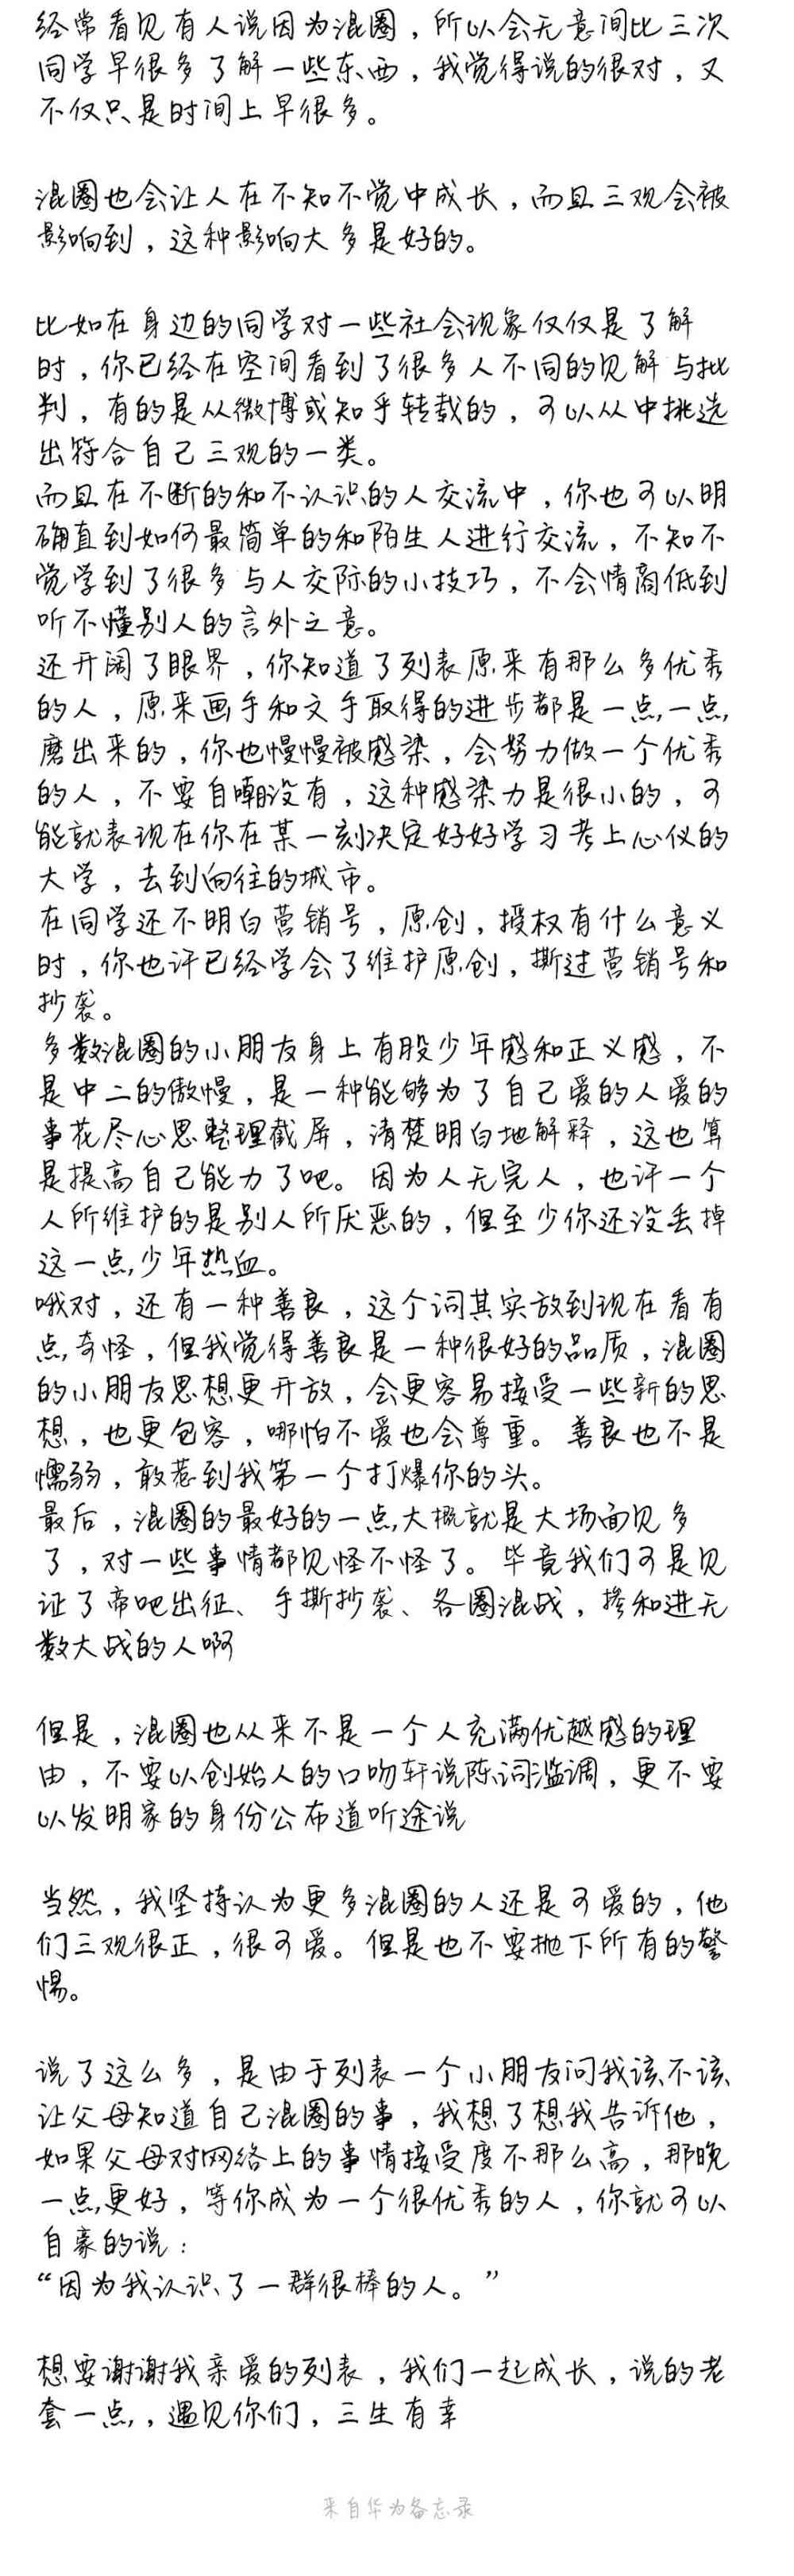 经常看见有人说因为混圈，所以会无意间比三次
同学早很多了解一些东西，我觉得说的很对，又
不仅只是时间上早很多。
混圈也会让人在不知不觉中成长，而且三观会被
影响到，这种影响大多是好的。
比如在身边的同学对一些社会现象仅仅是了解
时，你已经在空间看到了很多人不同的见解与批
判，有的是从微博或知乎转载的，可以从中挑选
出符合自己三观的一类。
而且在不断的和不认识的人交流中，你也可以明
确直到如何最简单的和陌生人进行交流，不知不
觉学到了很多与人交际的小技巧，不会情商低到
听不懂别人的言外之意。
还开阔了眼界，你知道了列表原来有那么多优秀
的人，原来画手和文手取得的进步都是一点一点
磨出来的，你也慢慢被感染，会努力做一个优秀
的人，不要自嘲没有，这种感染力是很小的，可
能就表现在你在某一刻决定好好学习考上心仪的
大学，去到向往的城市。
在同学还不明白营销号，原创，授权有什么意义
时，你也许已经学会了维护原创，撕过营销号和
抄袭。
多数混圈的小朋友身上有股少年感和正义感，不
是中二的傲慢，是一种能够为了自己爱的人爱的
事花尽心思整理截屏，清楚明白地解释，这也算
是提高自己能力了吧。因为人无完人，也许一个
人所维护的是别人所厌恶的，但至少你还没丢掉
这一点少年热血。
哦对，还有一种善良，这个词其实放到现在看有
点奇怪，但我觉得善良是一种很好的品质，混圈
的小朋友思想更开放，会更容易接受一些新的思
想，也更包容，哪怕不爱也会尊重。善良也不是
懦弱，敢惹到我第一个打爆你的头。
最后，混圈的最好的一点大概就是大场面见多
了，对一些事情都见怪不怪了。毕竟我们可是见
证了帝吧出征、手撕抄袭、各圈混战，掺和进无
数大战的人啊
但是，混圈也从来不是一个人充满优越感的理
由，不要以创始人的口吻轩说陈词滥调，更不要
以发明家的身份公布道听途说
当然，我坚持认为更多混圈的人还是可爱的，他
们三观很正，很可爱。但是也不要抛下所有的警
惕。
说了这么多，是由于列表一个小朋友问我该不该
让父母知道自己混圈的事，我想了想我告诉他，
如果父母对网络上的事情接受度不那么高，那晚
一点更好，等你成为一个很优秀的人，你就可以
自豪的说：
“因为我认识了一群很棒的人。”
想要谢谢我亲爱的列表，我们一起成长，说的老
套一点，遇见你们，三生有幸
来自华为备忘录